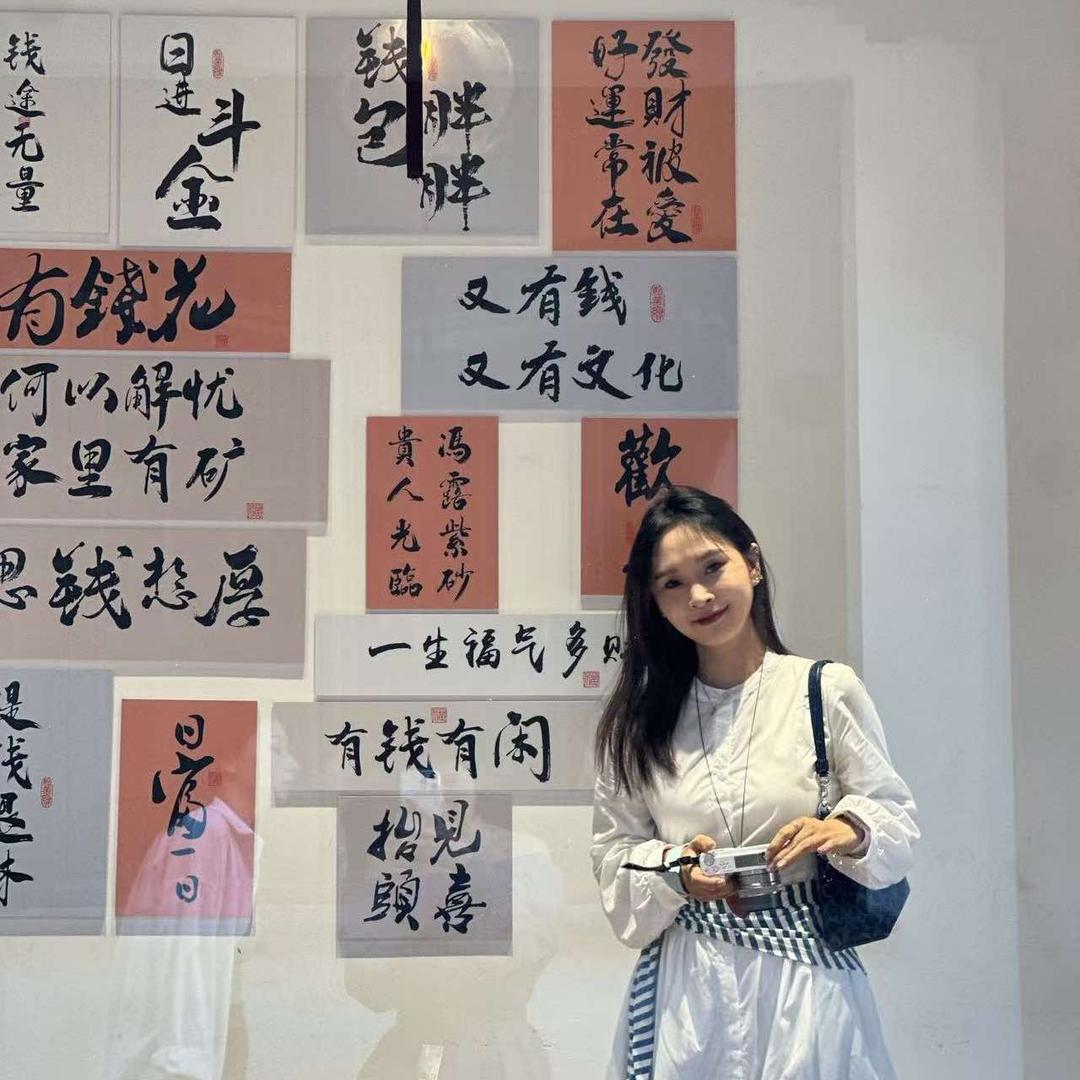 钱途无量
日进
斗金
钱包
胖胖
發財被愛
好運常在
有錢花
又有錢
又有文化
何以解忧
家里有矿
馮露紫砂
貴人光臨
歡
思钱想厚
一生福气多财
有钱有闲
是钱是
日富一日
抬頭
見喜